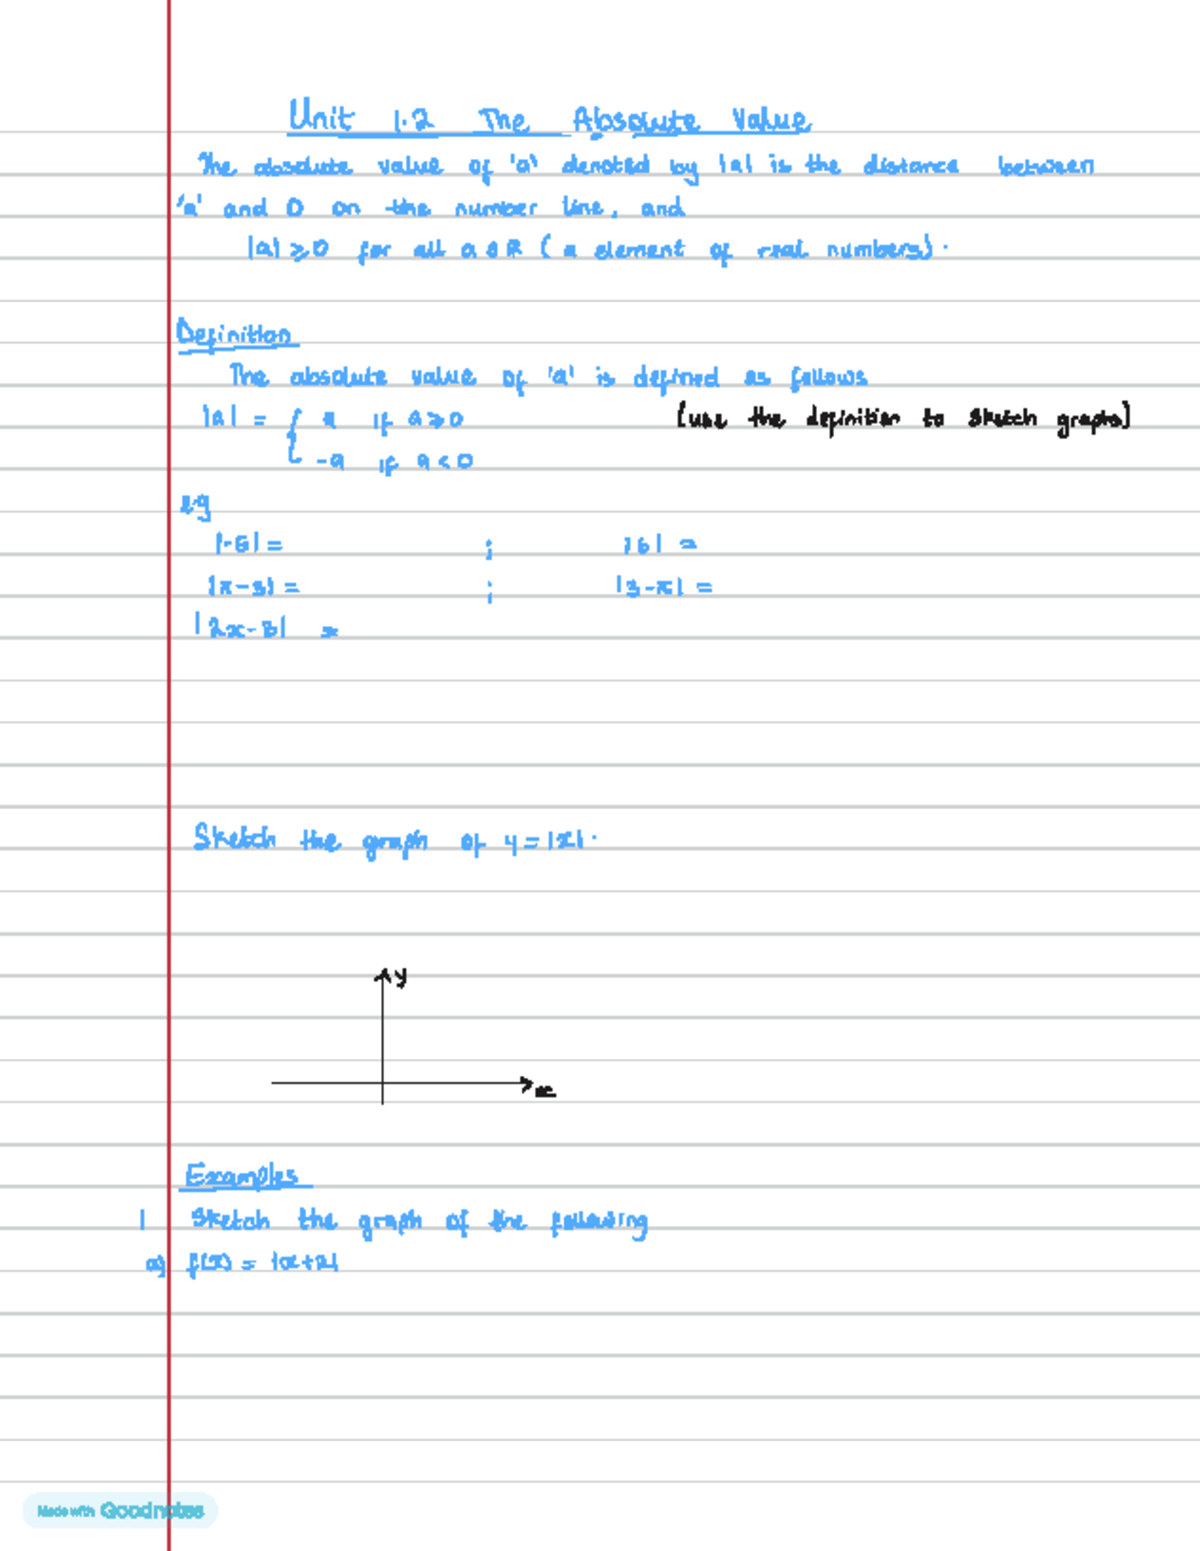 Unit 1.2 The Absolute Value
The absolute value of 'a' denoted by |a| is the distance between
'a' and 0 on the number line, and
|a| ≥ 0 for all a ∈ R ( a element of real numbers).
Definition
The absolute value of 'a' is defined as follows
|a| = { a if a ≥ 0 (use the definition to sketch graphs)
-a if a < 0
eg
|-6| = ; |6| =
|π-3| = ; |3-π| =
|2x-3| =
Sketch the graph of y = |x|.
y
x
Examples
1 Sketch the graph of the following
a) f(x) = |x+2|
Made with Goodnotes